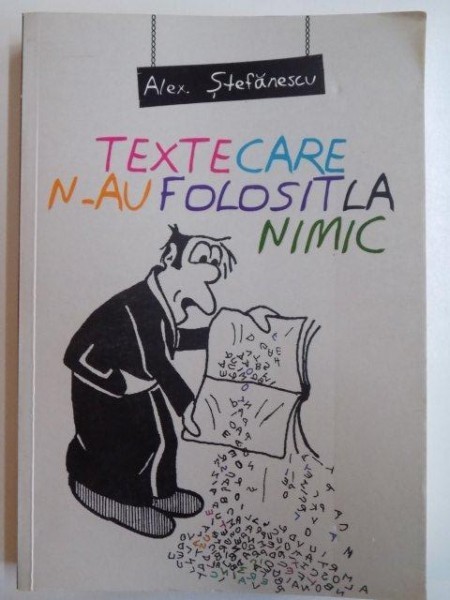 Alex. Ștefănescu
TEXTE CARE
N-AU FOLOSIT LA
NIMIC